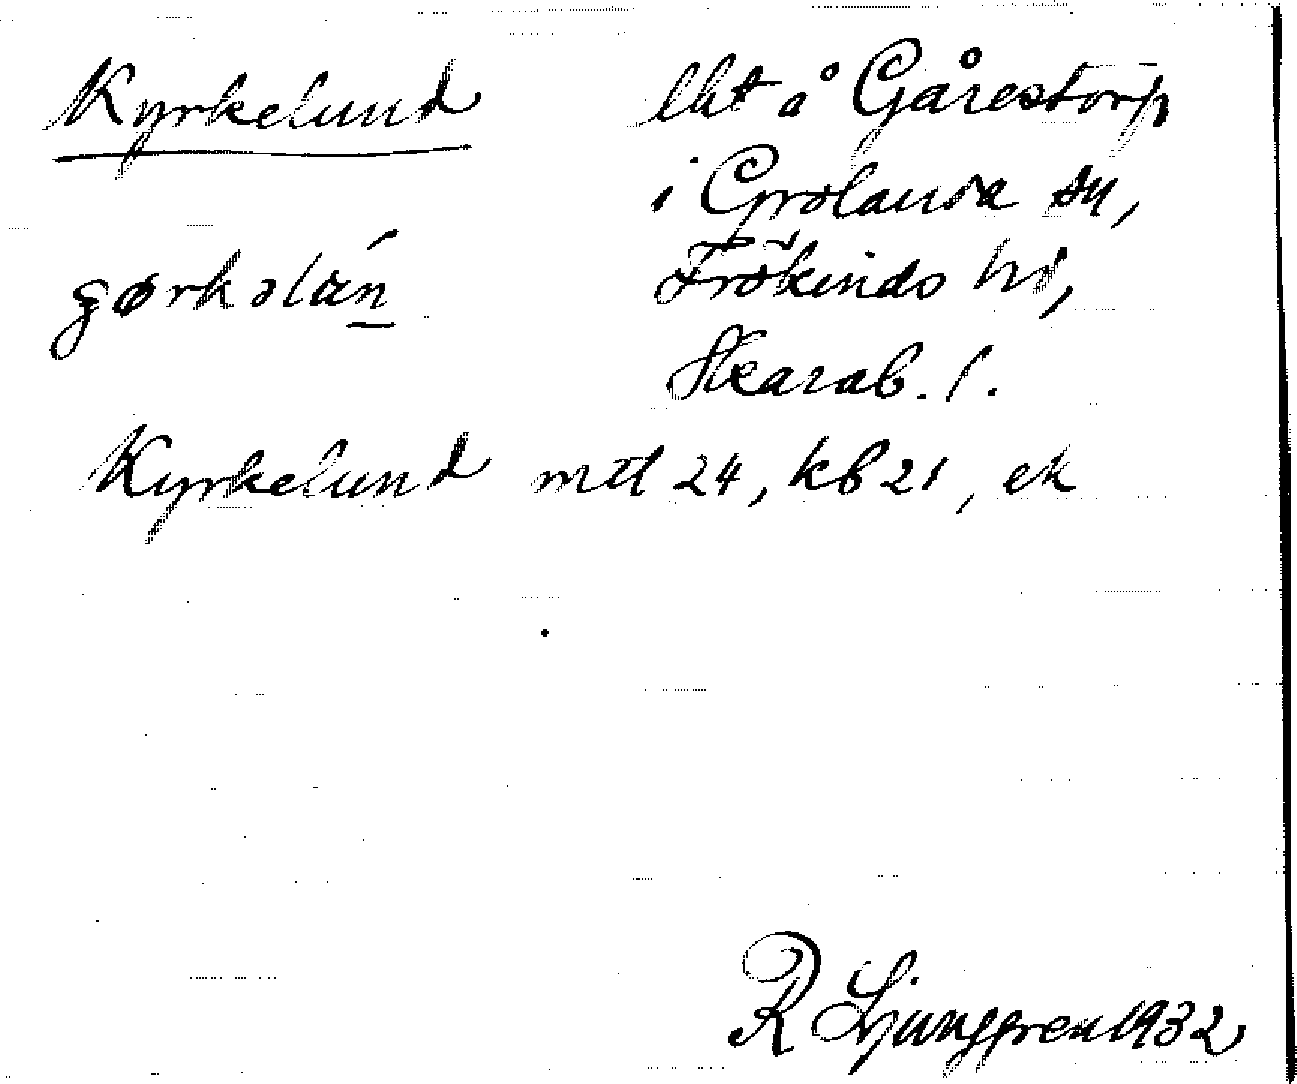 Kyrkelund lht å Gårestorp
i Grolanda sn,
Frökinds hd,
Skarab. l.
Kyrkelund mtl 24, kb 21, ek
R Ljunggren 1932